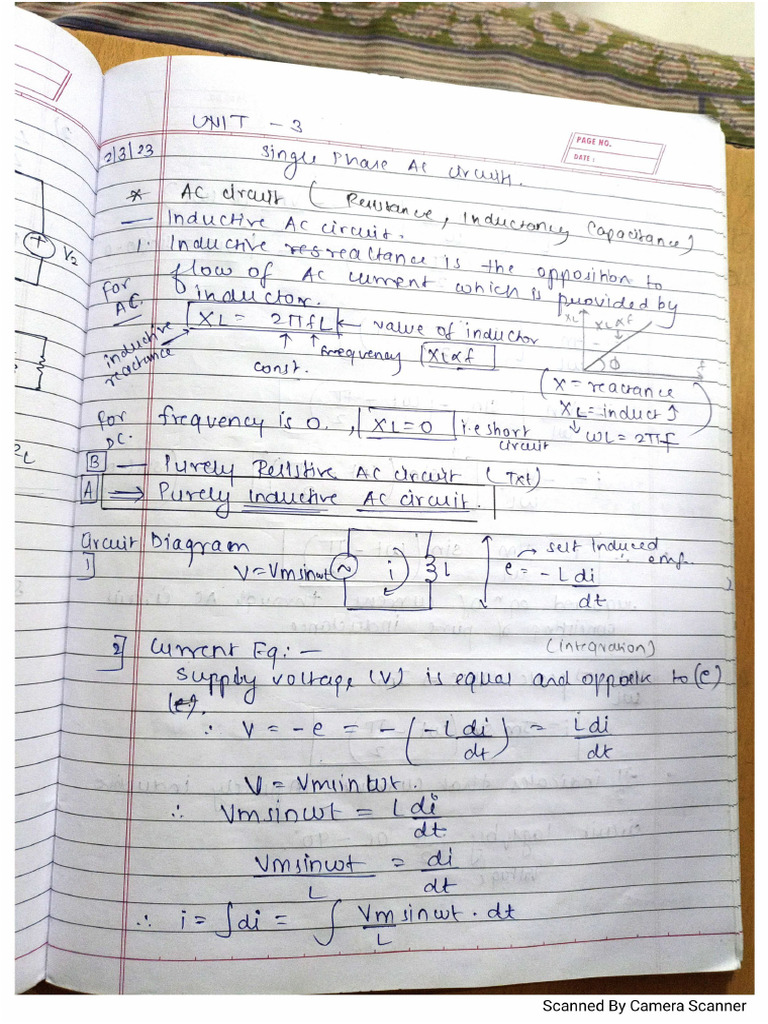 UNIT - 3
PAGE NO.
DATE:
2/3/23
Single Phase AC circuit.
* AC circuit ( Resistance, Inductance, Capacitance)
— Inductive AC circuit.
1. Inductive res reactance is the opposition to
for AC. flow of AC current which is provided by
inductor.
inductive reactance XL = 2πfL ← value of inductor
const. frequency XL∝f
XL XL∝f f
ϕ
(X = reactance
XL = induct
ωL = 2πf)
for DC. frequency is 0., XL=0 i.e short circuit
B — Purely Resistive AC circuit (Txt)
A ⇒ Purely Inductive AC circuit.
Circuit Diagram
1] V=Vmsinωt i L e = -L di/dt → self induced emf.
2] Current Eq:- (integration)
Supply voltage (V) is equal and opposite to (e)
(e).
∴ V = -e = -(-L di/dt) = L di/dt
V = Vmsinωt.
∴ Vmsinωt = L di/dt
Vmsinωt/L = di/dt
∴ i = ∫di = ∫ Vm/L sinωt . dt
V2
Scanned By Camera Scanner